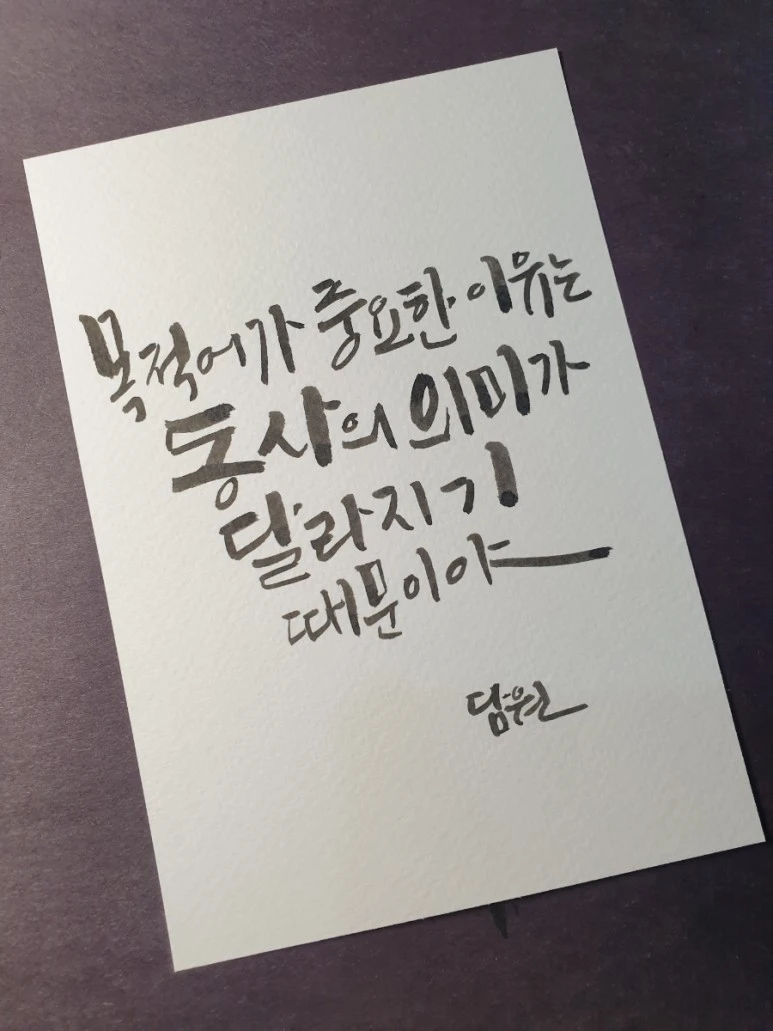 목적어가 중요한 이유는
동사의 의미가
달라지기
때문이야
담원